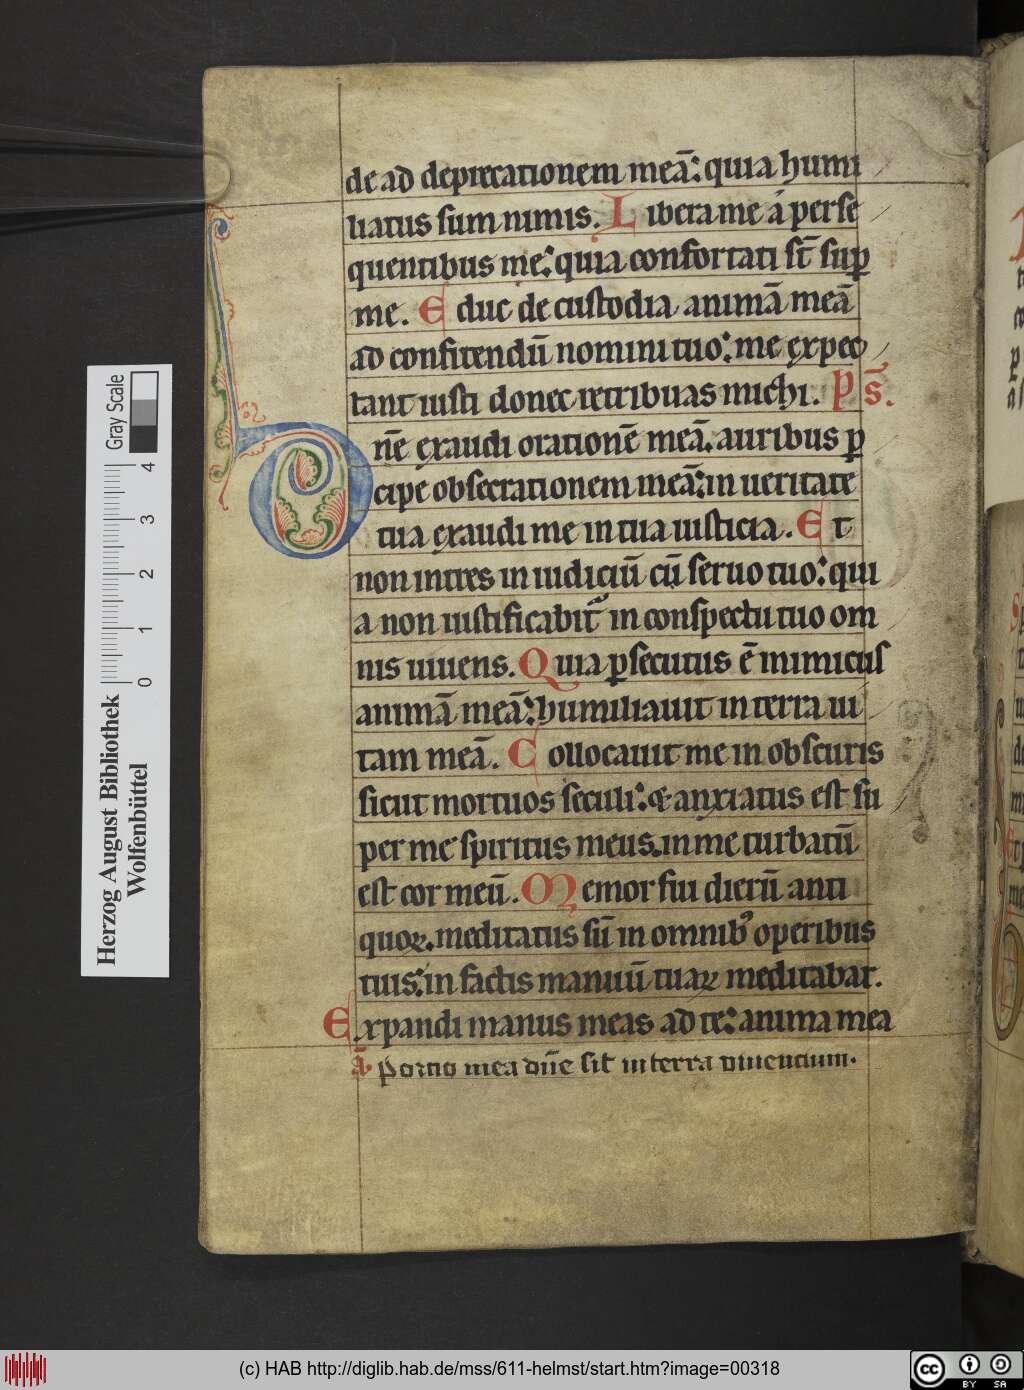 de ad deprecationem meā: quia humi
liatus sum nimis. Libera me a perse
quentibus me: quia confortati sт̄ suꝑ
me. Educ de custodia animā meā
ad confitendū nomini tuo: me expec
tant iusti donec retribuas michi. Ps̄.
Dn̄e exaudi orationē meā. auribus ꝑ
cipe obsecrationem meā: in ueritate
tua exaudi me in tua iusticia. Et
non intres in iudiciū cū seruo tuo: qui
a non iustificabit᷑ in conspectu tuo om
nis uiuens. Quia ꝑsecutus ē inimicus
animā meā: humiliauit in terra ui
tam meā. Collocauit me in obscuris
sicut mortuos seculi: & anxiatus est su
per me spiritus meus. in me turbatū
est cor meū. Memor fui dierū anti
quoꝝ. meditatus sū in omnibꝰ operibus
tuis: in factis manuū tuaꝝ meditabar.
Expandi manus meas ad te: anima mea
a᷑. Portio mea dn̄e sit in terra viuentium.
Herzog August Bibliothek
Wolfenbüttel
0 1 2 3 4
Gray Scale
(c) HAB http://diglib.hab.de/mss/611-helmst/start.htm?image=00318
cc BY SA